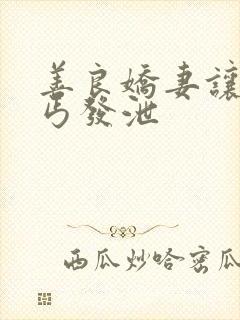 善良嬌妻讓
丐發泄
西瓜炒哈密瓜